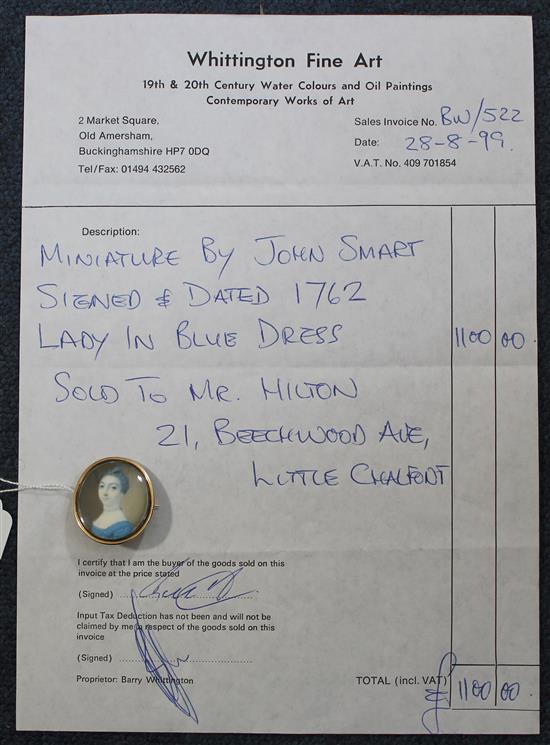 Whittington Fine Art
19th & 20th Century Water Colours and Oil Paintings
Contemporary Works of Art
2 Market Square,
Old Amersham,
Buckinghamshire HP7 0DQ
Tel/Fax: 01494 432562
Sales Invoice No. BW/522
Date: 28-8-99.
V.A.T. No. 409 701854
Description:
MINIATURE BY JOHN SMART
SIGNED & DATED 1762
LADY IN BLUE DRESS 1100 00.
SOLD TO MR. HILTON
21, BEECHWOOD AVE,
LITTLE CHALFONT
I certify that I am the buyer of the goods sold on this
invoice at the price stated
(Signed)
Input Tax Deduction has not been and will not be
claimed by me in respect of the goods sold on this
invoice
(Signed)
Proprietor: Barry Whittington
TOTAL (incl. VAT) £ 1100 00.